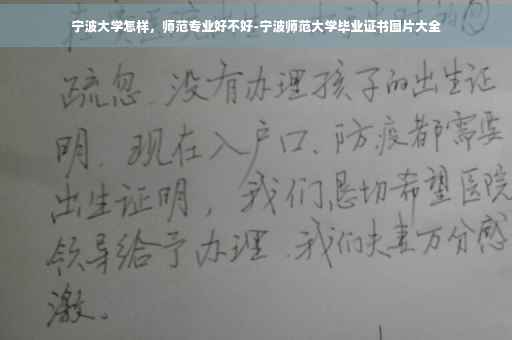 宁波大学怎样，师范专业好不好-宁波师范大学毕业证书图片大全
疏忽、没有办理孩子的出生证
明、现在入户口、防疫都需要
出生证明，我们恳切希望医院
领导给予办理、我们夫妻万分感
激。